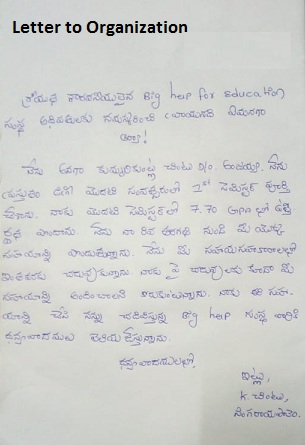 Letter to Organization
శ్రీయుత గౌరవనీయులైన Big help for education
సంస్థ అధిపతులకు నమస్కరించి వ్రాయునది ఏమనగా
నేను అనగా కుమ్మరికుంట్ల చింటు S/o. అంజయ్య. నేను
ప్రస్తుతం డిగ్రీ మొదటి సంవత్సరంలో 1st సెమిస్టర్ పూర్తి
చేశాను. నాకు మొదటి సెమిస్టర్ లో 7.70 GPA లో ఉత్తీ
ర్ణత పొందాను. నేను నా 8వ తరగతి నుండి మీ యొక్క
సహాయాన్ని పొందుతున్నాను. నేను మీ సహాయసహకారాలతో
ఇంతవరకు చదువుకున్నాను నాకు పై చదువులకు కూడా మీ
సహాయాన్ని అందించాలని కోరుకుంటున్నాను. నాకు ఈ సహా
యాన్ని చేసి నన్ను చదివిస్తున్న Big help సంస్థ వారికి
ధన్యవాదములు తెలియజేస్తున్నాను.
ధన్యవాదములతో,
ఇట్లు,
K. చింటు,